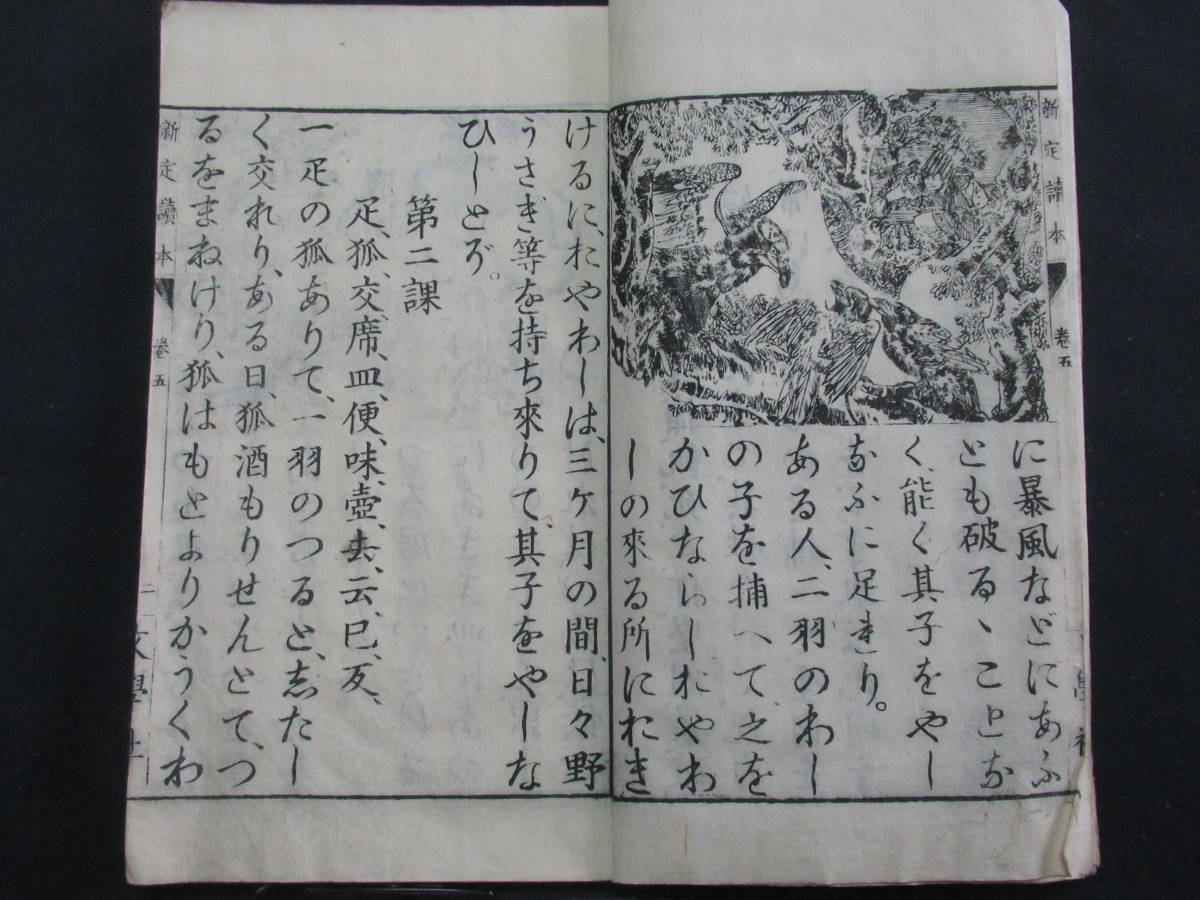 新定讀本 卷五
に暴風などにあふ
とも破るゝことな
く、能く其子をやし
なふに足れり。
ある人、二羽のわし
の子を捕へて、之を
かひならしおやわ
しの來る所におき
けるに、おやわしは、三ケ月の間、日々野
うさぎ等を持ち來りて、其子をやしな
ひしとぞ。
第二課
疋、狐、交、席、皿、便、味、壺、去、云、巳、友、
一疋の狐ありて、一羽のつると、志たし
く交れり、ある日、狐酒もりせんとて、つ
るをまねけり、狐はもとよりかうくわ
新定讀本 卷五 二 文學社